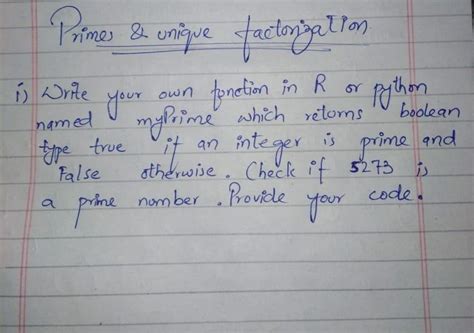 Primes & unique factorization
i) Write your own function in R or python
named myPrime which returns boolean
type true if an integer is prime and
False otherwise. Check if 5273 is
a prime number. Provide your code.